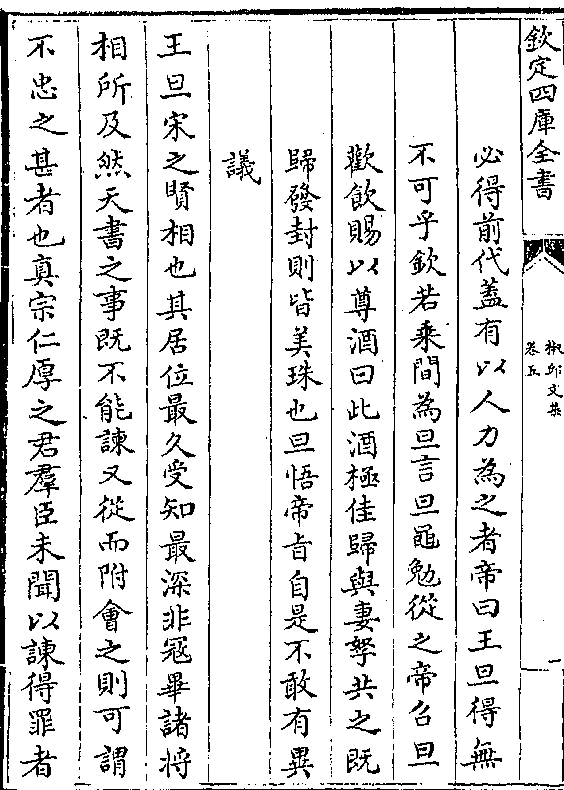 欽定四庫全書
椒邱文集
卷五
必得前代蓋有以人力為之者帝曰王旦得無
不可乎欽若乘間為旦言旦黽勉從之帝召旦
歡飲賜以尊酒曰此酒極佳歸與妻孥共之既
歸發封則皆美珠也旦悟帝旨自是不敢有異
議
王旦宋之賢相也其居位最久受知最深非冦畢諸將
相所及然天書之事既不能諫又從而附會之則可謂
不忠之甚者也真宗仁厚之君羣臣未聞以諫得罪者